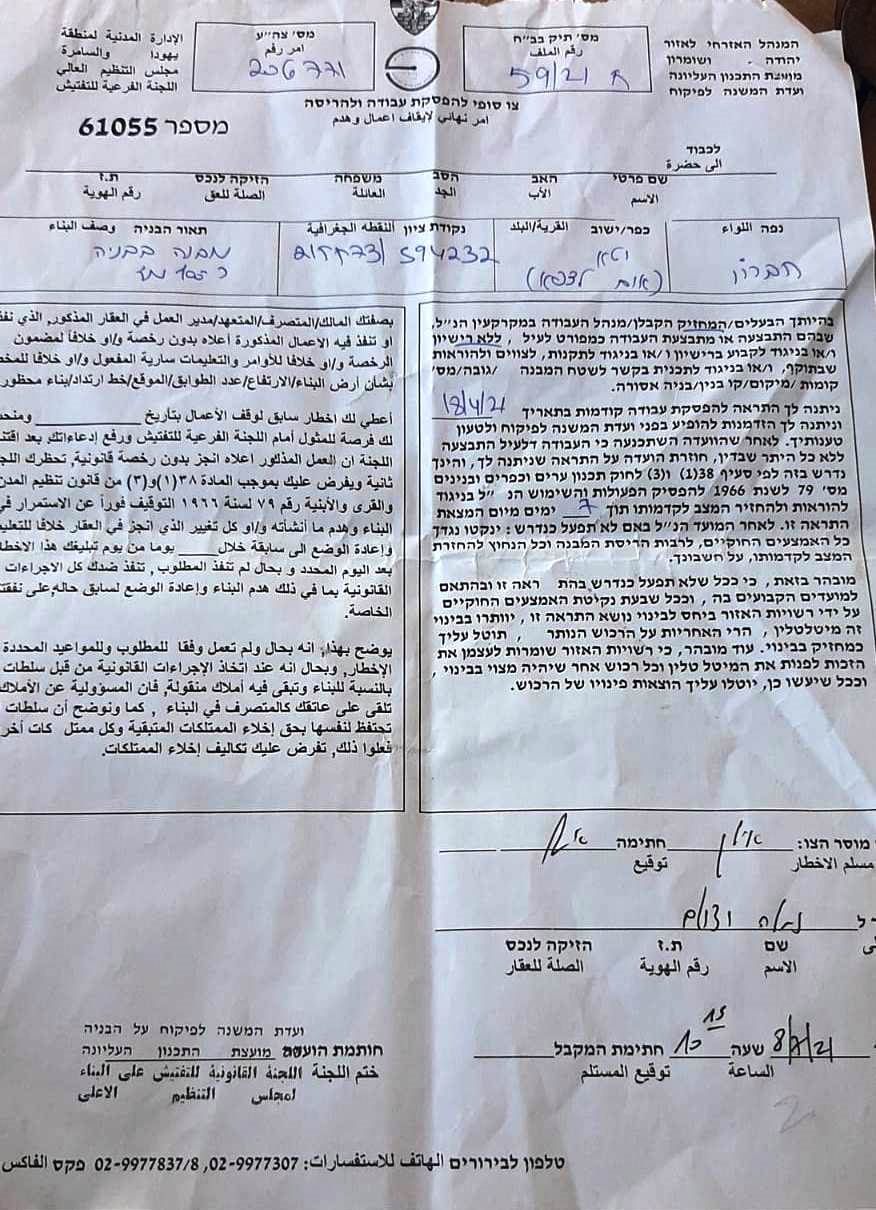 המנהל האזרחי לאזור
יהודה ושומרון
מועצת התכנון העליונה
ועדת המשנה לפיקוח
מס׳ תיק בב״ח
رقم الملف
59/21 ח
מס׳ צה״ע
امر رقم
206771
الإدارة المدنية لمنطقة
يهودا والسامرة
مجلس التنظيم العالي
اللجنة الفرعية للتفتيش
צו סופי להפסקת עבודה ולהריסה
امر نهائي لايقاف اعمال وهدم
מספר 61055
לכבוד
الى حضرة
שם פרטי האב הסב משפחה הזיקה לנכס ת.ז
الاسم الأب الجد العائلة الصلة للعق رقم الهوية
נפה اللواء
חברון
כפר/ישוב القرية/البلد
יטא
נקודת ציון النقطه الجغرافية
594232
תאור הבניה وصف البناء
מבנה בבניה
בהיותך הבעלים/המחזיק הקבלן/מנהל העבודה במקרקעין הנ״ל,
שבהם התבצעה או מתבצעת העבודה כמפורט לעיל, ללא רישיון
ו/או בניגוד לקבוע ברישיון ו/או בניגוד לתקנות, לצווים ולהוראות
שבתוקף, ו/או בניגוד לתכנית בקשר לשטח המבנה /גובה/מס׳
קומות/מיקום/קו בנין/בניה אסורה.
ניתנה לך התראה להפסקת עבודה קודמות בתאריך 18/4/21
וניתנה לך הזדמנות להופיע בפני ועדת המשנה לפיקוח ולטעון
טענותיך. לאחר שהוועדה השתכנעה כי העבודה דלעיל התבצעה
ללא כל היתר שבדין, חוזרת הועדה על התראה שניתנה לך, והינך
נדרש בזה לפי סעיף 38(1) ו(3) לחוק תכנון ערים וכפרים ובנינים
מס׳ 79 לשנת 1966 להפסיק הפעולות והשימוש הנ״ל בניגוד
להוראות ולהחזיר המצב לקדמותו תוך 7 ימים מיום המצאת
התראה זו. לאחר המועד הנ״ל באם לא תפעל כנדרש: ינקטו נגדך
כל האמצעים החוקיים, לרבות הריסת המבנה וכל הנחוץ להחזרת
המצב לקדמותו, על חשבונך.
מובהר בזאת, כי ככל שלא תפעל כנדרש בהת ראה זו ובהתאם
למועדים הקבועים בה, וככל שבעת נקיטת האמצעים החוקיים
על ידי רשויות האזור ביחס לבינוי נושא התראה זו, יוותרו בבינוי
זה מיטלטלין, הרי האחריות על הרכוש הנותר, תוטל עליך
כמחזיק בבינוי. עוד מובהר, כי רשויות האזור שומרות לעצמן את
הזכות לפנות את המיטל טלין וכל רכוש אחר שיהיה מצוי בבינוי,
וככל שיעשו כן, יוטלו עליך הוצאות פינויו של הרכוש.
بصفتك المالك/المتصرف/المتعهد/مدير العمل في العقار المذكور, الذي
او تنفذ فيه الاعمال المذكورة اعلاه بدون رخصة و/او خلافاً لمضمون
الرخصة و/او خلافا للأوامر والتعليمات سارية المفعول و/او خلافا
بشأن أرض البناء/الارتفاع/عدد الطوابق/الموقع/خط ارتداد/بناء محظور
أعطي لك اخطار سابق لوقف الأعمال بتاريخ
لك فرصة للمثول أمام اللجنة الفرعية للتفتيش ورفع إدعاءاتك, بعد
اللجنة ان العمل المذكور اعلاه انجز بدون رخصة قانونية, تحظرك
ثانية ويفرض عليك بموجب المادة ٣٨(١)و(٣) من قانون تنظيم
والقرى والأبنية رقم ٧٩ لسنة ١٩٦٦ التوقيف فوراً عن الاستمرار في
البناء وهدم ما أنشأته و/او كل تغيير الذي انجز في العقار خلافا
وإعادة الوضع الى سابقة خلال يوما من يوم تبليغك هذا
بعد اليوم المحدد و بحال لم تنفذ المطلوب, تنفذ ضدك كل الاجراءات
القانونية بما في ذلك هدم البناء وإعادة الوضع لسابق حاله, على
الخاصة.
يوضح بهذا, انه بحال ولم تعمل وفقا للمطلوب وللمواعيد المحددة
الإخطار, وبحال انه عند اتخاذ الإجراءات القانونية من قبل سلطات
بالنسبة للبناء وتبقى فيه أملاك منقولة, فان المسؤولية عن
تلقى على عاتقك كالمتصرف في البناء, كما ونوضح أن سلطات
تحتفظ لنفسها بحق إخلاء الممتلكات المتبقية وكل ممتل كات
فعلوا ذلك, تفرض عليك تكاليف إخلاء الممتلكات.
מוסר הצו: חתימה
مسلم الاخطار توقيع
שם ת.ז הזיקה לנכס
الاسم رقم الهوية الصلة للعقار
8/7/21 שעה 10 15 חתימת המקבל
الساعة توقيع المستلم
ועדת המשנה לפיקוח על הבניה
חותמת הועדה מועצת התכנון העליונה
ختم اللجنة اللجنة القانونية للتفتيش على البناء
لمجلس التنظيم الاعلى
טלפון לבירורים الهاتف للاستفسارات: 02-9977307, 02-9977837/8 פקס الفاكس